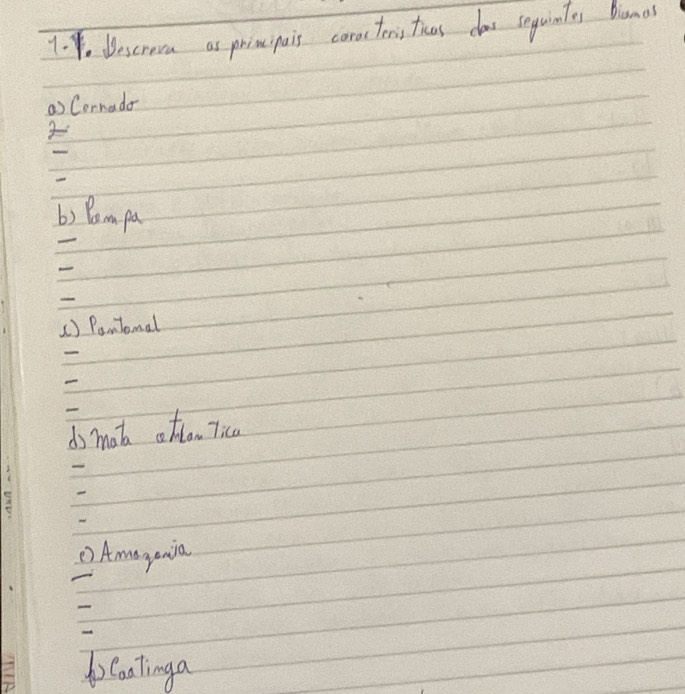 1-1. Descreva as principais caracteristicas dos seguintes Biomas
a) Cerrado
-
-
-
b) Pampa
-
-
-
c) Pantanal
-
-
-
d) mata atlantica
-
-
-
e) Amazonia
-
-
-
f) Caatinga